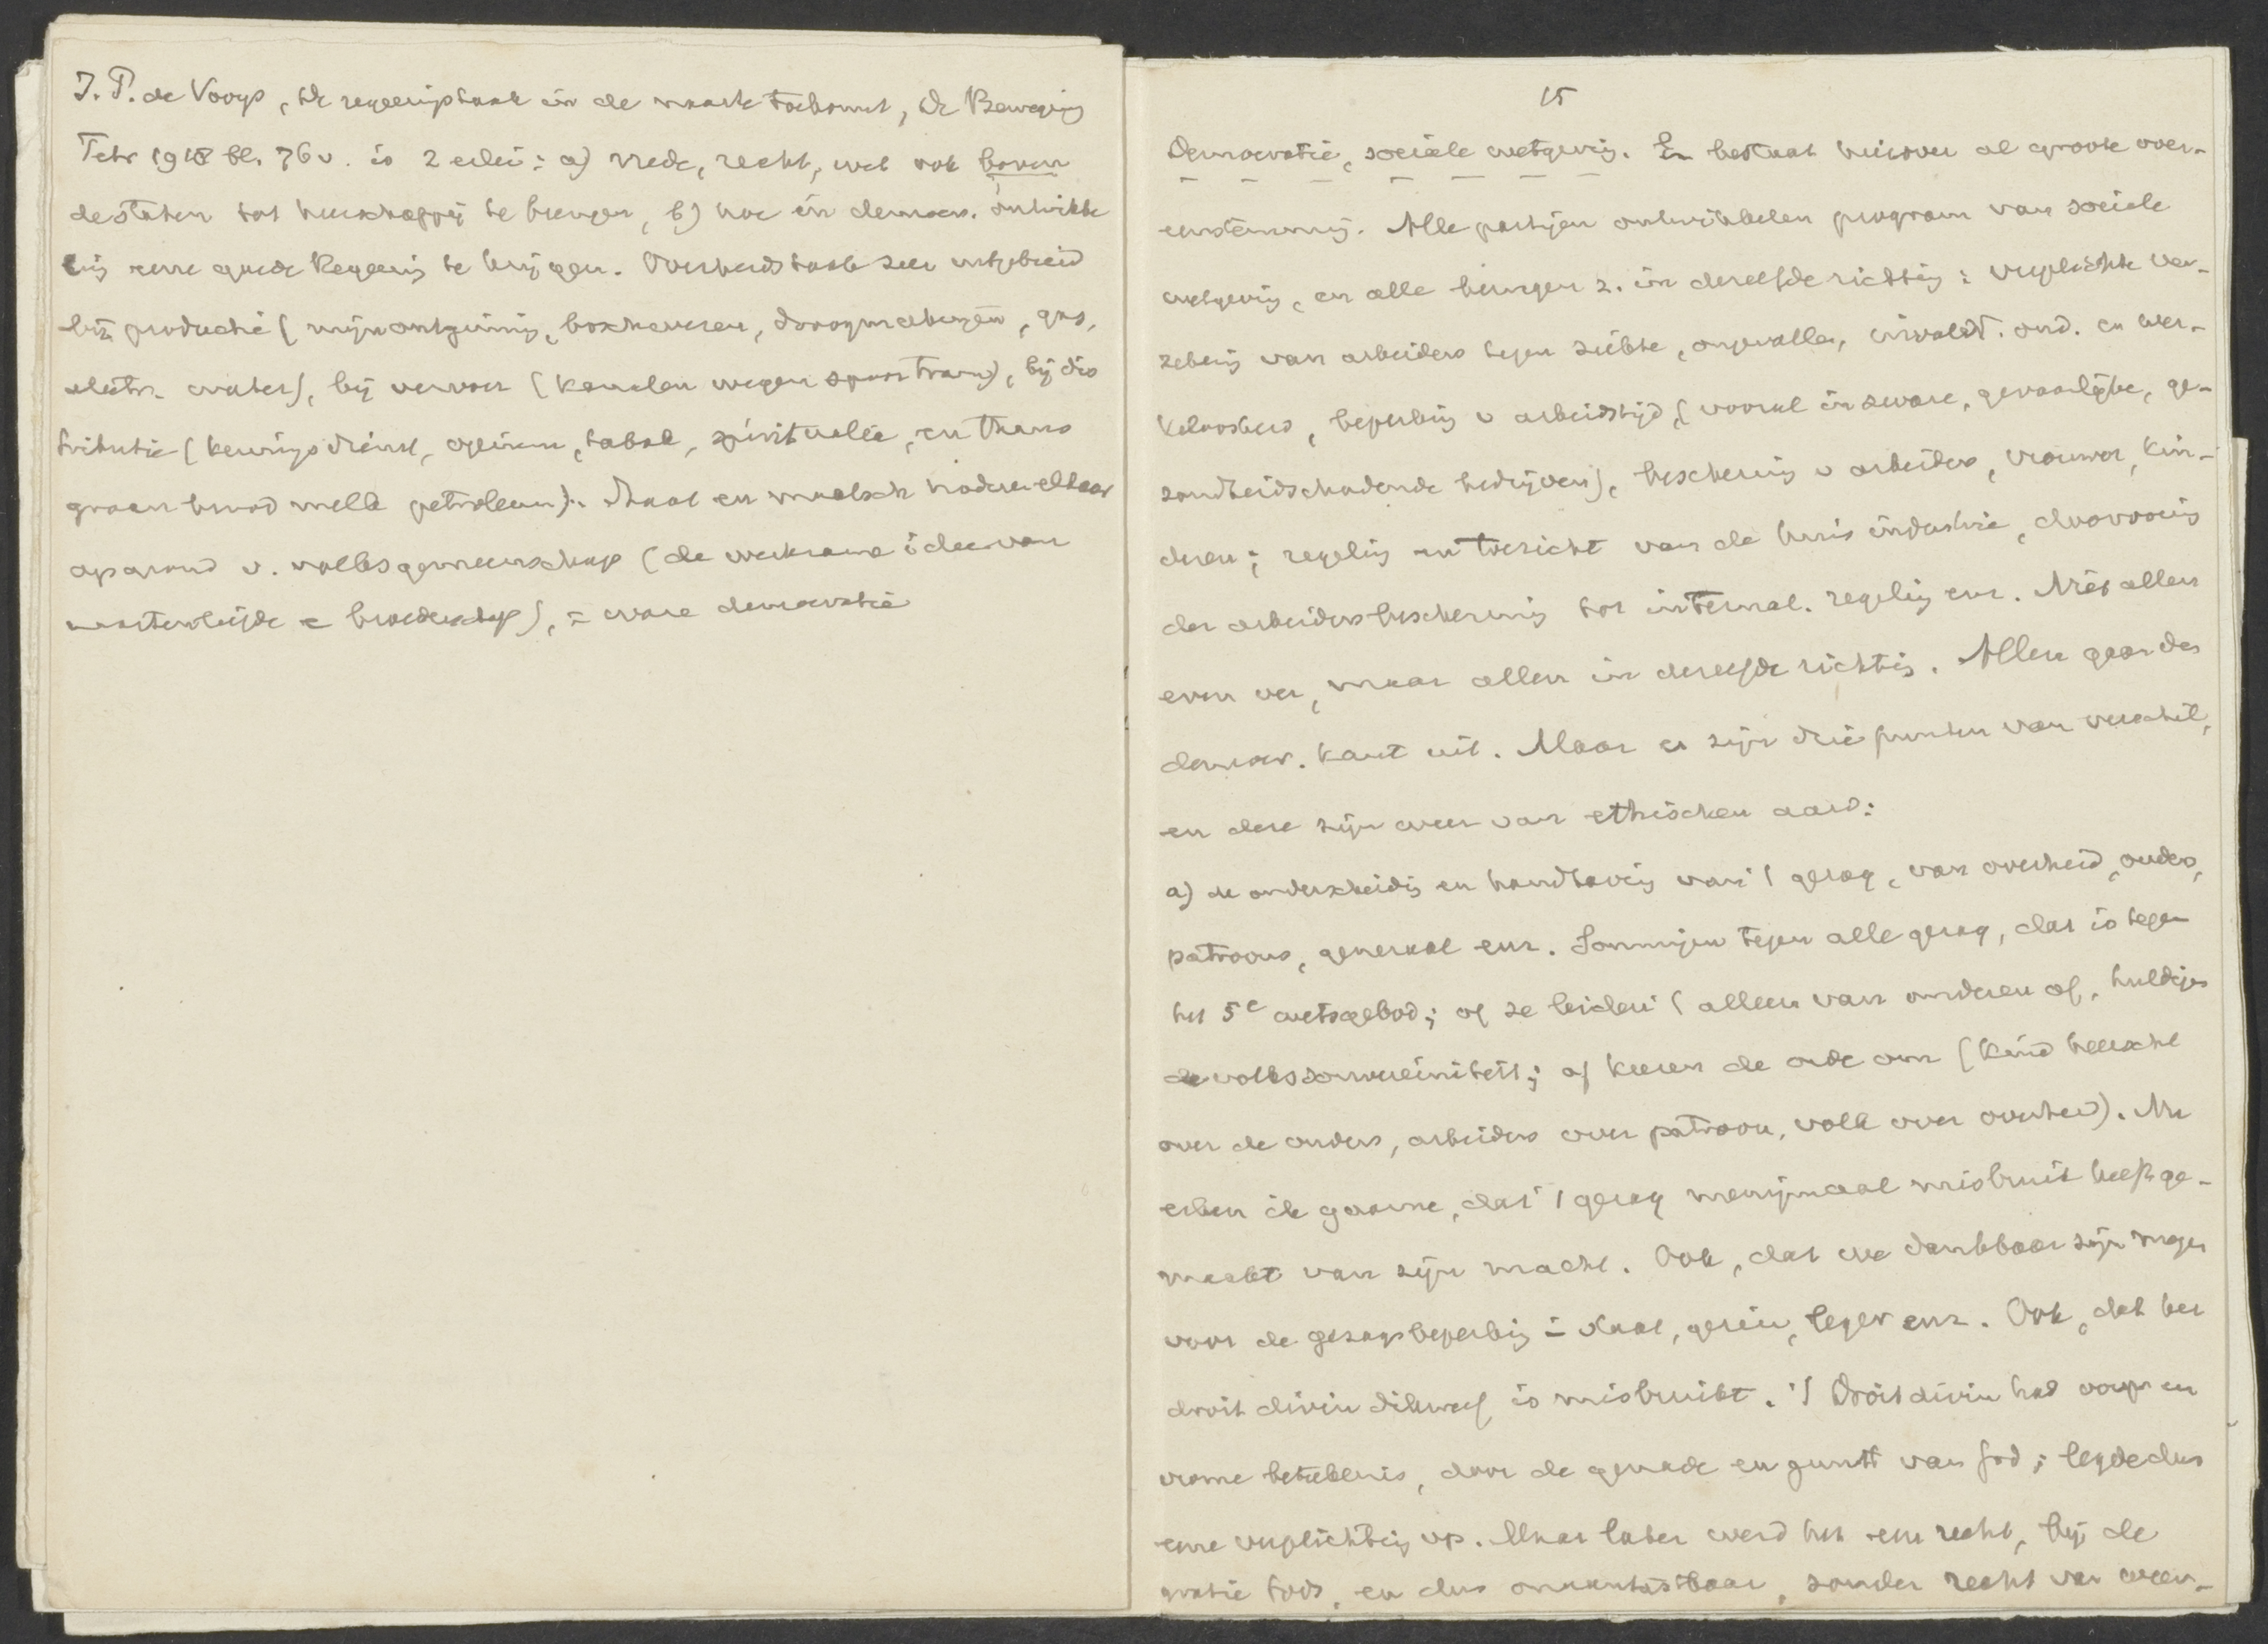 I. P. de Vooys, De regeeringstaak in de naaste toekomst, De Beweging
Febr 1918 bl. 76 v. is 2 erlei: a) vrede, recht, wet ook boven
de staten tot heerschappij te brengen, b) hoe in democr. ontwikke
ling eene goede Regeering te krijgen. Overheidstaak zeer uitgebreid
bij productie (mijnontginning, boschwezen, droogmakingen, gas,
electr. water), bij vervoer (kanalen wegen spoor tram), bij dis
tributie (keuringsdienst, opium, tabak, spiritualia, en thans
graan brood melk petroleum). Staat en maatsch naderen elkaar
op grond v. volksgemeenschap (de werkzame idee van
naastenliefde = broederschap), = ware democratie
15
Democratie, sociale wetgeving. Er bestaat hierover al groote over-
eenstemming. Alle partijen ontwikkelen program van sociale
wetgeving, en alle bewegen z. in dezelfde richting: verplichte ver-
zekering van arbeiders tegen ziekte, ongevallen, invalidt. oud. en wer-
keloosheid, beperking v arbeidstijd (vooral in zware, gevaarlijke, ge-
zondheidschadende bedrijven), bescherming v arbeiders, vrouwen, kin-
deren; regeling en toezicht van de huisindustrie, doorvoering
der arbeidersbescherming tot internat. regeling enz. Niet allen
even ver, maar allen in dezelfde richting. Allen gaan den
democr. kant uit. Maar er zijn drie punten van verschil,
en deze zijn weer van ethischen aard:
a) de onderscheiding en handhaving van 't gezag, van overheid, ouders,
patroons, generaal enz. Sommigen tegen alle gezag, dat is tegen
het 5e wetsgebod; of ze leiden 't alleen van onderen af, huldigen
de volkssouvereiniteit; of keeren de orde om (kind heerscht
over de ouders, arbeiders over patroon, volk over overheid). Nu
erken ik gaarne, dat 't gezag menigmaal misbruik heeft ge-
maakt van zijn macht. Ook, dat we dankbaar zijn mogen
voor de gezagsbeperking in staat, gezin, leger enz. Ook, dat het
droit divin dikwerf is misbruikt. 't Droit divin had oorspr een
vrome beteekenis, door de genade en gunst van God; legde dus
eene verplichting op. Maar later werd het een recht, bij de
gratie Gods, en dus onaantastbaar, zonder recht van weer-